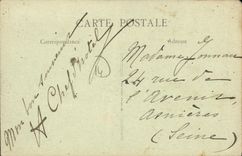 CARTE POSTALE
Correspondance
Adresse
Mon bon souvenir
A Chef d'hotel
Madame Jonnau
24 rue de
l'Avenir
Asnières
(Seine)